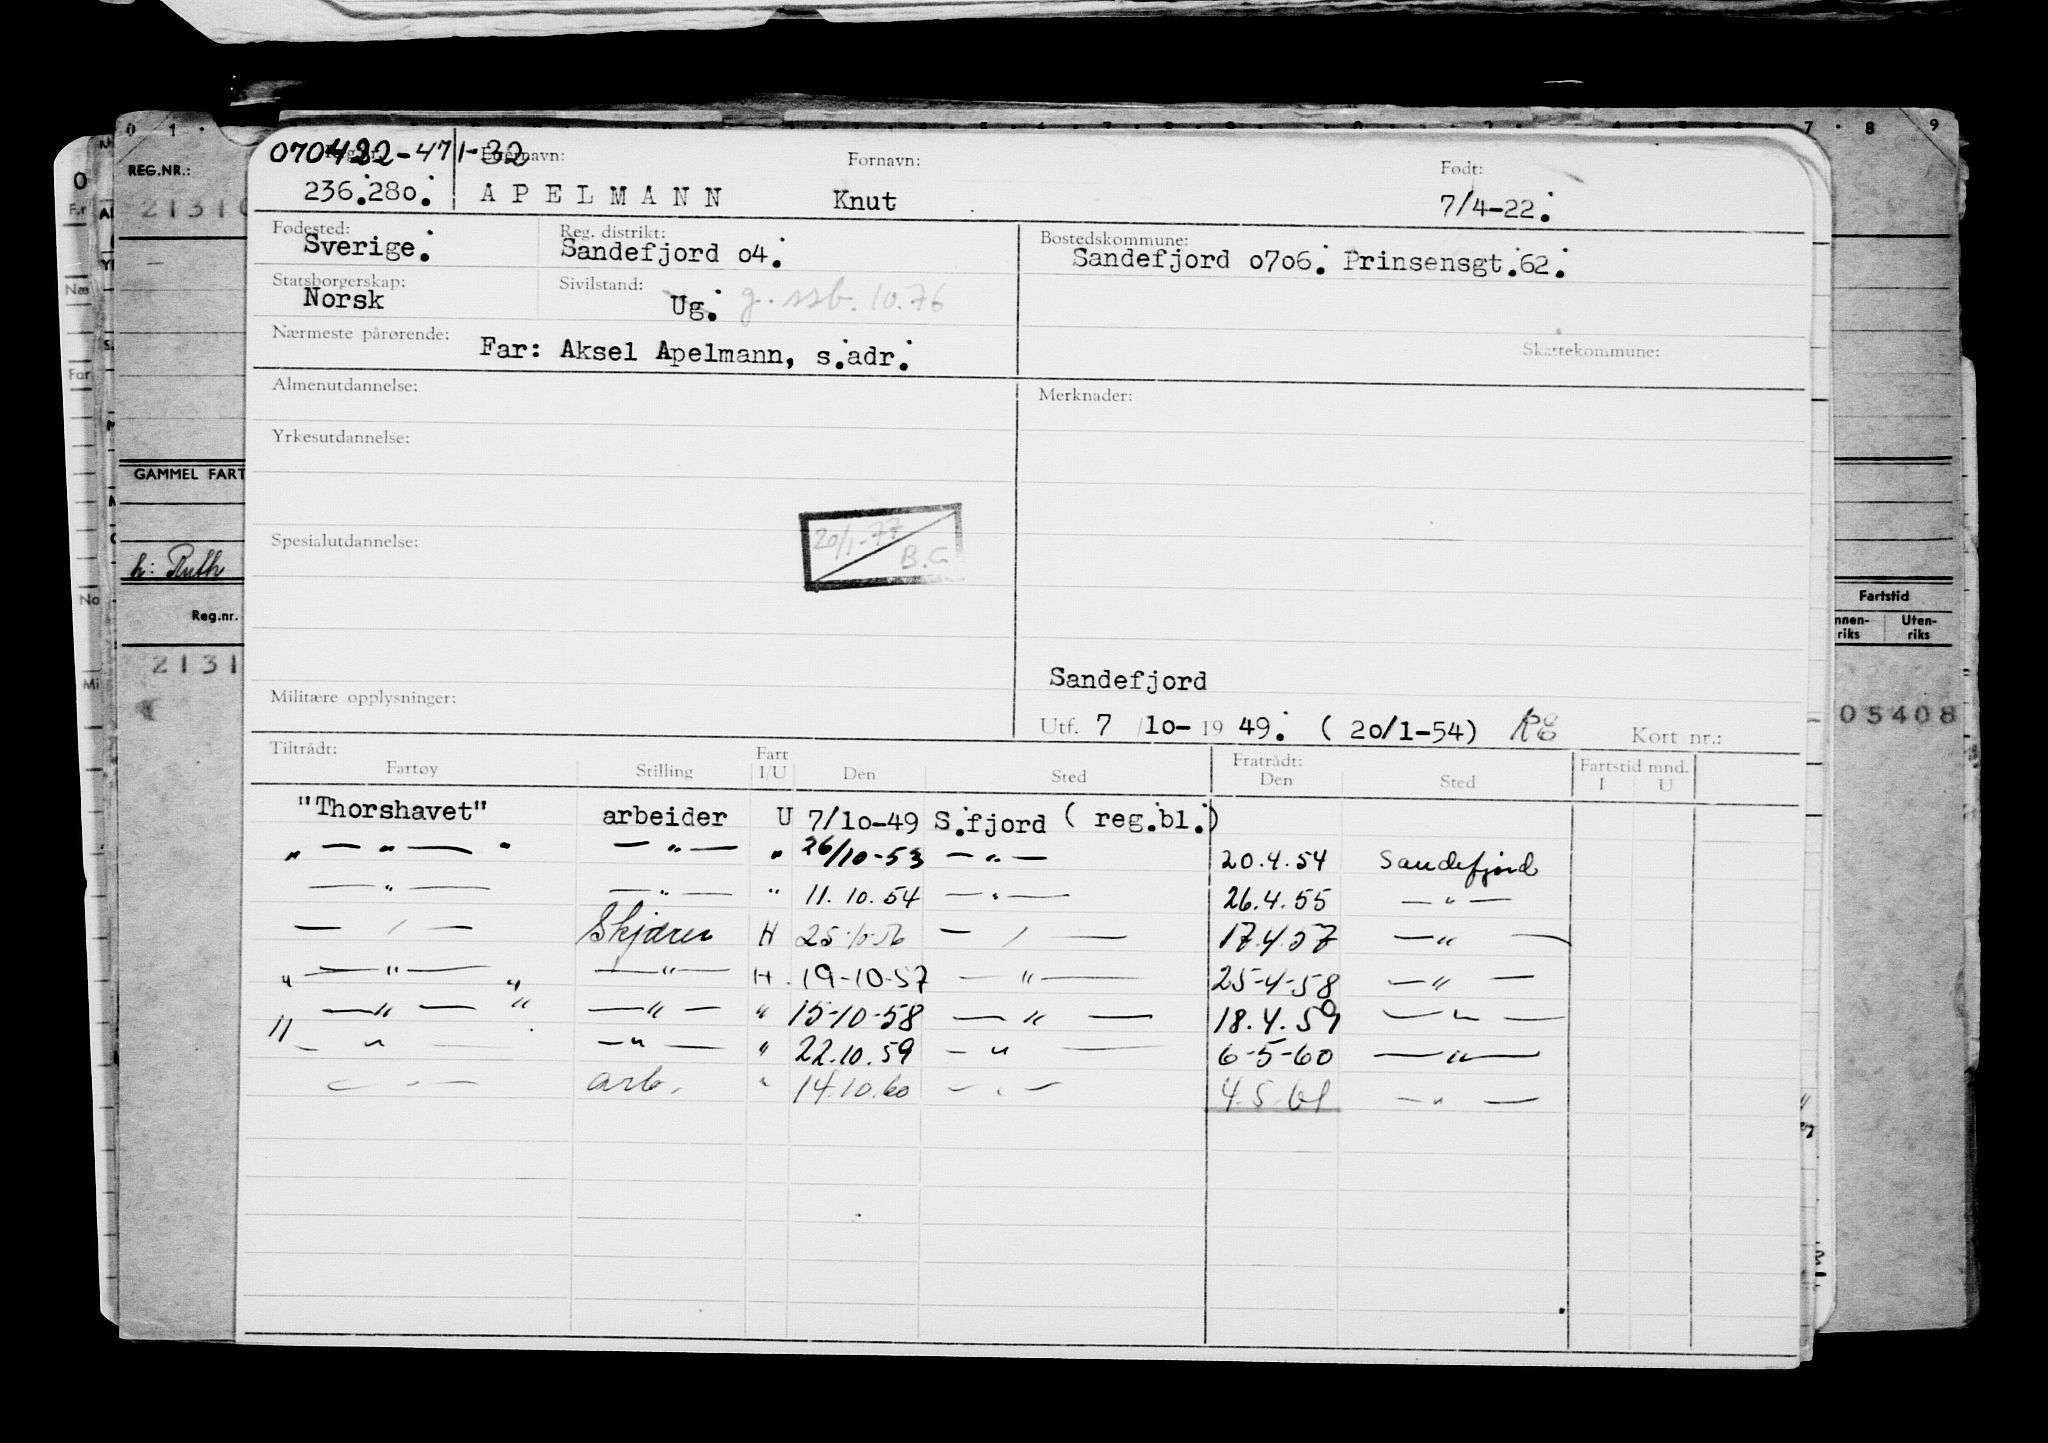 0 1 . 7 . 8 9
REG.NR.:
2131
GAMMEL FART
h: Ruth
Reg.nr.
2131
Fartstid
nnen-riks Uten-riks
05408
070422-471-32
236.280. Etternavn: Fornavn: Født:
A P E L M A N N Knut 7/4-22.
Fødested: Reg. distrikt: Bostedskommune:
Sverige. Sandefjord o4. Sandefjord o7o6. Prinsensgt.62.
Statsborgerskap: Sivilstand:
Norsk Ug. g. ssb. 10.76
Nærmeste pårørende: Far: Aksel Apelmann, s.adr. Skattekommune:
Almenutdannelse: Merknader:
Yrkesutdannelse:
20/1-77
B.G
Spesialutdannelse:
Sandefjord
Militære opplysninger:
Utf. 7 /1o- 19 49. ( 2o/1-54) Kort nr.:
Tiltrådt: Fart Fratrådt: Fartstid mnd.
Fartøy Stilling I/U Den Sted Den Sted I U
"Thorshavet" arbeider U 7/1o-49 S.fjord ( reg.bl.)
" — " — " — " — " 26/10-53 — " — 20.4.54 Sandefjord
— " — — " — " 11.10.54 — " — 26.4.55 — " —
— " — Skjærer H 25.10.56 — " — 17.4.57 — " —
" — " — " — " — H. 19-10-57 — " — 25-4-58 — " —
— " — " — " — " 15-10-58 — " — 18.4.59 — " —
" — " — — " — " 22.10.59 — " — 6-5-60 — " —
— " — arb. " 14.10.60 — " — 4.5.61 — " —